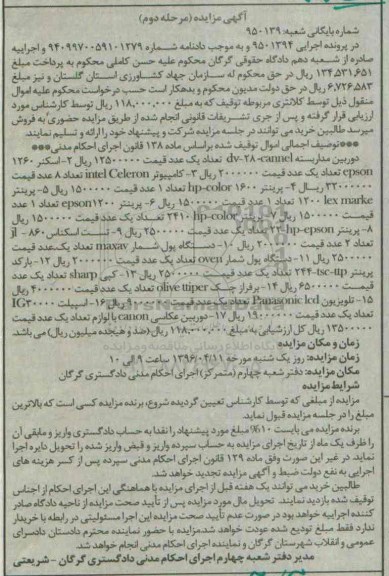 آگهی مزایده (مرحله دوم)
شماره بایگانی شعبه: ۹۵۰۱۳۹
در پرونده اجرایی ۹۵۰۱۳۹۴ و به موجب دادنامه شماره ۹۴۰۹۹۷۰۰۵۹۱۰۱۳۷۹ و اجراییه
صادره از شعبه دهم دادگاه حقوقی گرگان محکوم علیه حسن کاملی محکوم به پرداخت مبلغ
۱۳۴,۵۳۱,۶۵۱ ریال در حق محکوم له سازمان جهاد کشاورزی استان گلستان و نیز مبلغ
۶,۷۲۶,۵۸۳ ریال در حق دولت مدیون محکوم و بدهکار است حسب درخواست محکوم علیه اموال
منقول ذیل توسط کلانتری مربوطه توقیف که به مبلغ ۱۱۸,۰۰۰,۰۰۰ ریال توسط کارشناس مورد
ارزیابی قرار گرفته و پس از جری تشریفات قانونی انجام شده از طریق مزایده حضوری به فروش
میرسد طالبین خرید می توانند در جلسه مزایده شرکت و پیشنهاد خود را ارائه و تسلیم نمایند.
***توصیف اجمالی اموال توقیف شده براساس ماده ۱۳۸ قانون اجرای احکام مدنی***
دوربین مداربسته dv-۲۸-cannel تعداد یک عدد قیمت ۱۲۵۰۰۰۰۰ ریال ۲-اسکنر ۱۲۶۰
epson تعداد یک عدد قیمت ۲۰۰۰۰۰۰ ریال ۳- کامپیوتر intel Celeron تعداد ۸ عدد قیمت
۳۲۰۰۰۰۰۰ ریال ۴- پرینتر hp-color ۱۶۰۰ تعداد ۱ عدد قیمت ۱۵۰۰۰۰۰ ریال ۵- پرینتر
lex marke ۱۲۰۰ تعداد ۱ عدد قیمت ۱۵۰۰۰۰۰ ریال ۶- پرینتر epson ۱۲۰۰ تعداد ۱ عدد
قیمت ۱۵۰۰۰۰۰ ریال ۷- پرینتر hp-color ۲۴۱۰ تعداد یک عدد قیمت ۱۵۰۰۰۰۰ ریال
۸- پرینتر hp-epson تعداد یک عدد قیمت ۲۵۰۰۰۰۰ ریال ۹- تست اسکناس jl - ۸۶۰
تعداد ۲ عدد قیمت ۲۰۰۰۰۰۰ ریال ۱۰- دستگاه پول شمار maxav تعداد یک عدد قیمت
۲۵۰۰۰۰۰ ریال ۱۱- دستگاه پول شمار oven تعداد یک عدد قیمت ۲۰۰۰۰۰۰ ریال ۱۲- بارکد
پرینتر ۲۴۴-tsc-ttp تعداد یک عدد قیمت ۲۵۰۰۰۰۰ ریال ۱۳- کپی sharp تعداد یک عدد
قیمت ۶۵۰۰۰۰۰ ریال ۱۴- پرفراژ چک olive ttiper تعداد یک عدد قیمت ۴۰۰۰۰۰۰ ریال
۱۵- تلویزیون Panasonic lcd تعداد یک عدد قیمت ریال ۱۶- اسپیلت IG۳۰۰۰۰
قیمت ۱۹۰۰۰۰۰۰ ریال ۱۷- دوربین عکاسی canon با لوازم تعداد یک عدد قیمت
۱۳۵۰۰۰۰۰ ریال کل ارزشیابی به مبلغ ۱۱۸,۰۰۰,۰۰۰ ریال (صد و هیجده میلیون ریال) می باشد.
زمان و مکان مزایده
زمان مزایده: روز یک شنبه مورخه ۱۳۹۶/۰۴/۱۱ ساعت ۹ الی ۱۰
مکان مزایده: دفتر شعبه چهارم (متمرکز) اجرای احکام مدنی دادگستری گرگان
شرایط مزایده
مزایده از مبلغی که توسط کارشناس تعیین گردیده شروع، برنده مزایده کسی است که بالاترین
مبلغ را در جلسه مزایده قبول نماید.
برنده مزایده می بایست ۱۰% مبلغ مورد پیشنهاد را نقدا به حساب دادگستری واریز و مابقی آن
را ظرف یک ماه از تاریخ اجرای مزایده به حساب سپرده واریز و قبض واریز شده را تحویل دایره اجرا
نماید در غیر این صورت وفق ماده ۱۲۹ قانون اجرای احکام مدنی سپرده پس از کسر هزینه های
اجرایی به نفع دولت ضبط و آگهی مزایده تجدید خواهد شد.
طالبین خرید می توانند یک هفته قبل از اجرای مزایده با هماهنگی این اجرای احکام از اجناس
توقیف شده بازدید نمایند. تحویل مال مورد مزایده پس از تأیید صحت مزایده از ناحیه دادگاه صادر
کننده اجراییه خواهد بود در صورت عدم تأیید صحت مزایده این اجرا مسئولیتی در رابطه با خریدار
ندارد فقط مبلغ تودیع شده عودت خواهد شد. مزایده با حضور نماینده محترم دادستان دادسرای
عمومی و انقلاب شهرستان گرگان و نماینده اجرای احکام مدنی انجام خواهد شد.
مدیر دفتر شعبه چهارم اجرای احکام مدنی دادگستری گرگان - شریعتی